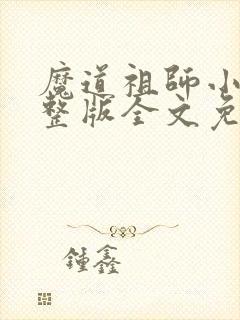 魔道祖師小
整版全文免
鍾鑫